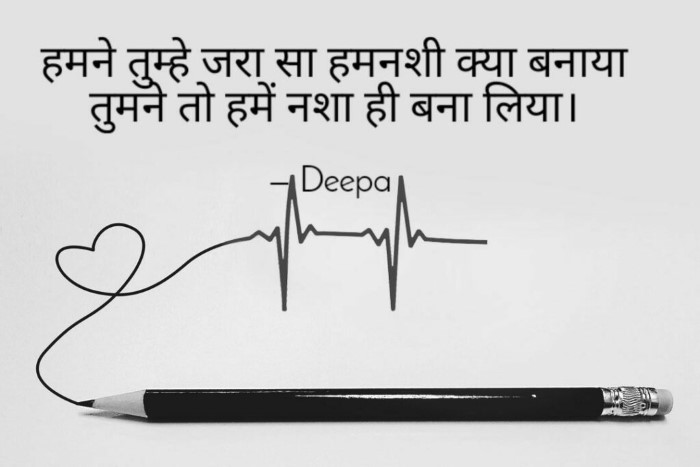 हमने तुम्हे जरा सा हमनशी क्या बनाया
तुमने तो हमें नशा ही बना लिया।
– Deepa